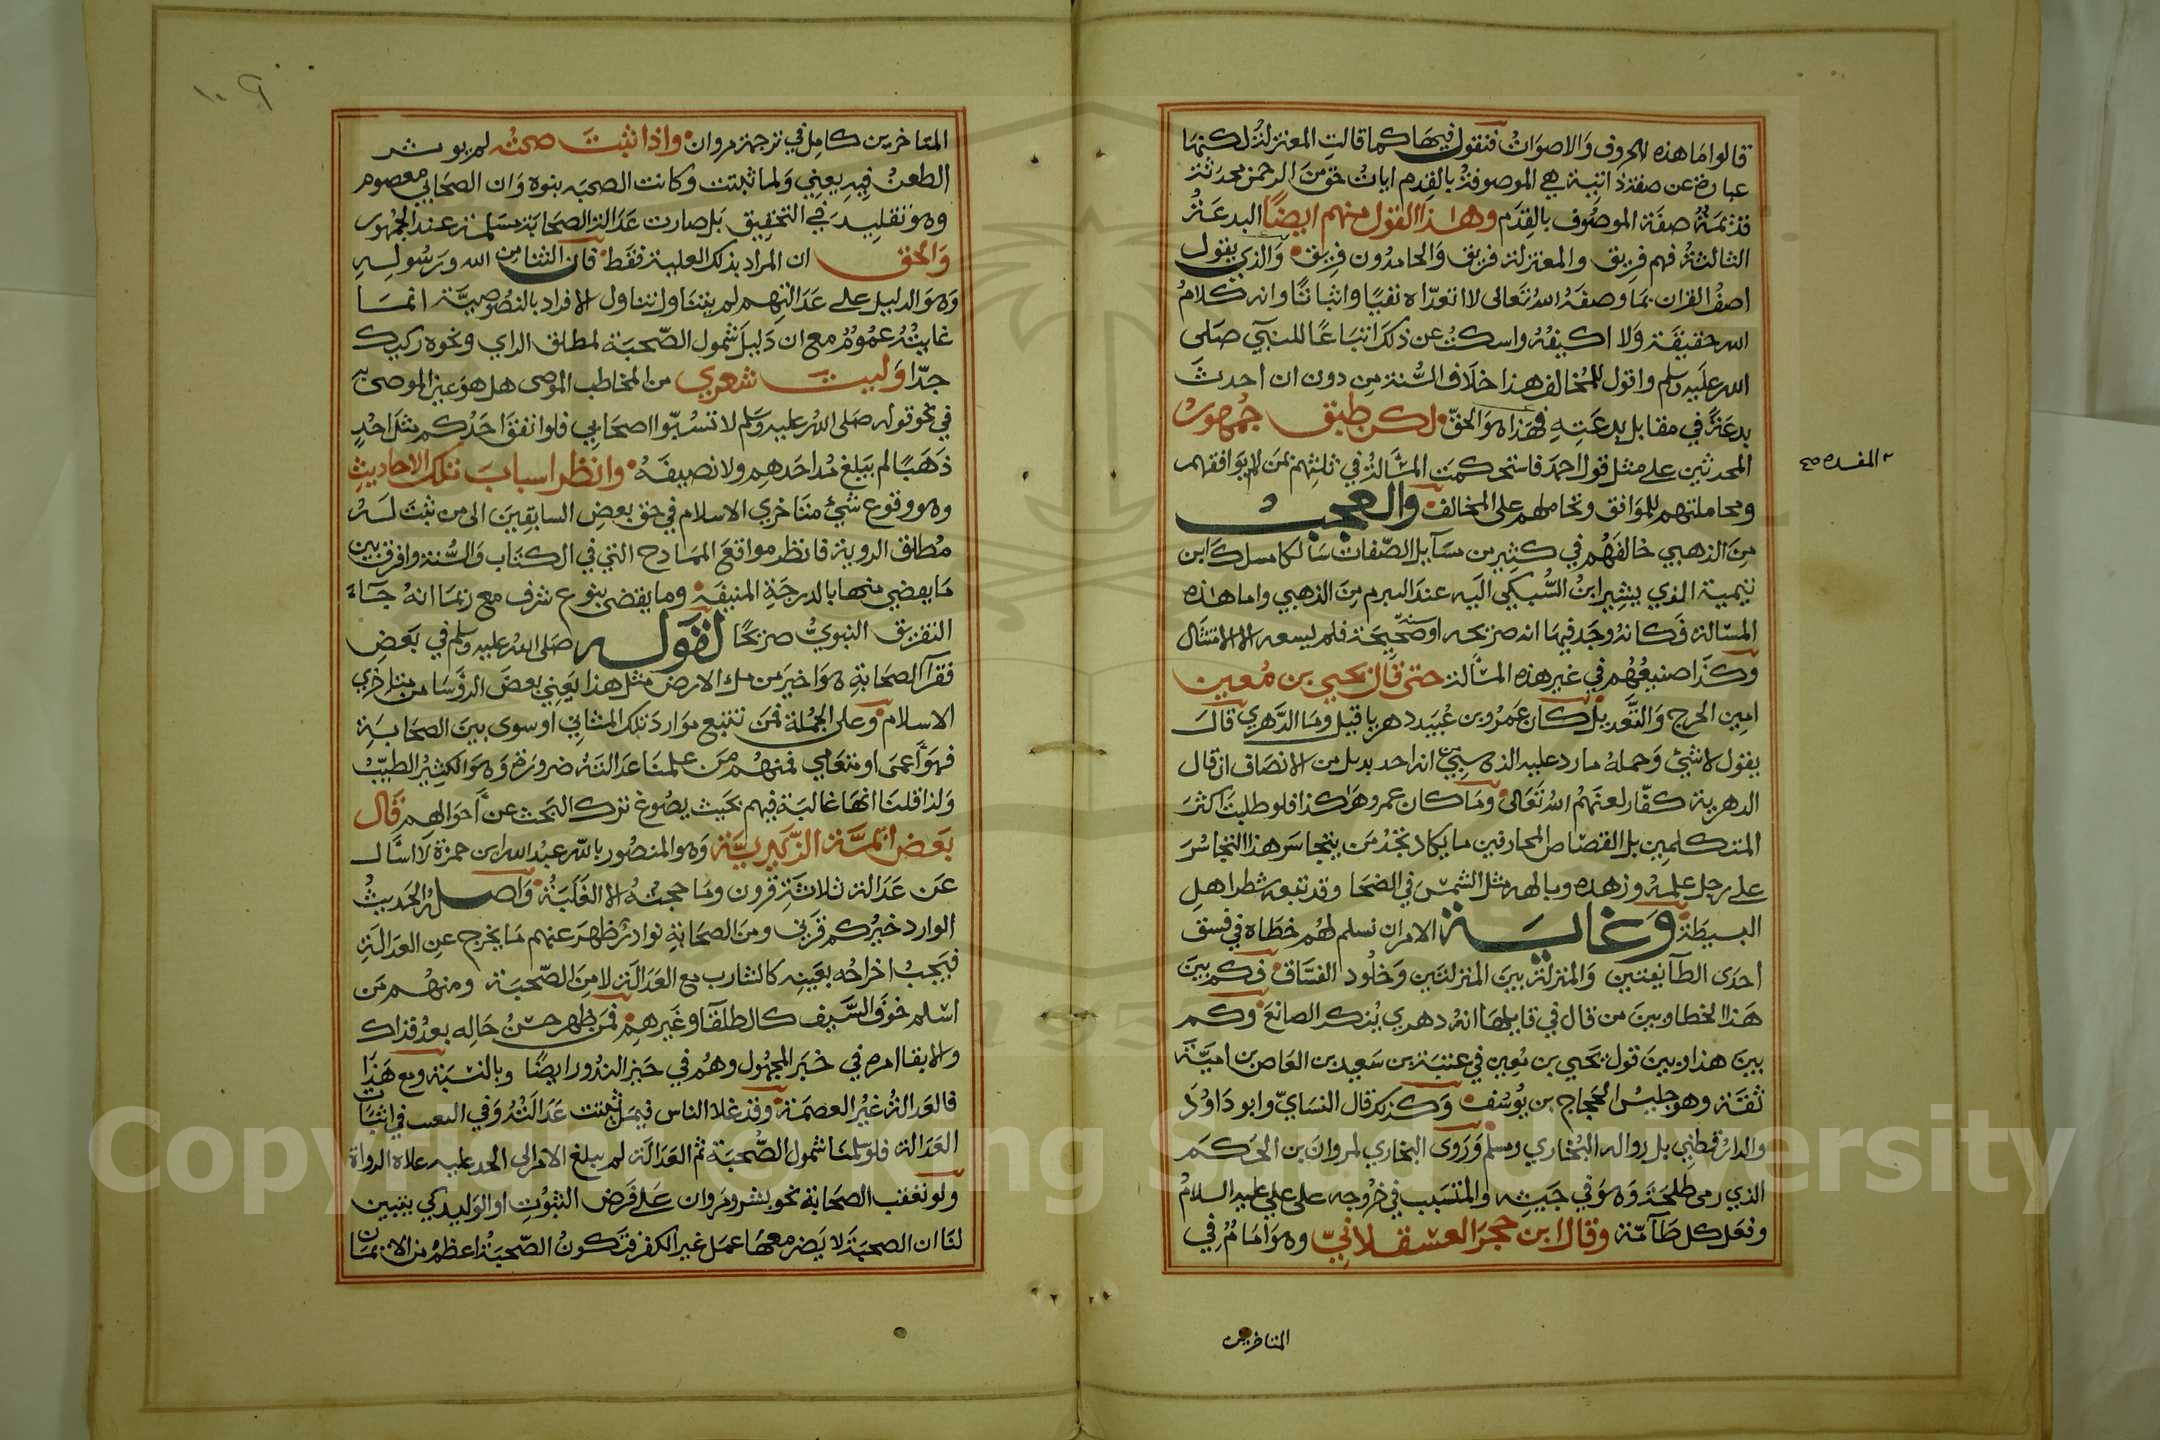 قالوا اما هذه الحروف والاصوات فنقول فيها كما قالت المعتزلة لكنها
عبارة عن صفة ذاتية هي الموصوفة بالقدم ايات حق من الرحمن محدثة
قديمة صفة الموصوف بالقدم وهذا القول منهم ايضا البدعة
الثالثة فهم فريق والمعتزلة فريق والحامدون فريق والذي يقول
اصف القران بما وصفه الله تعالى لا اتعداه نفيا واثباتا وانه كلام
الله حقيقة ولا اكيفه واسكت عن ذلك اتباعا للنبي صلى
الله عليه وسلم واقول للمخالف هذا خلاف السنة من دون ان احدث
بدعة في مقابل بدعته فهذا هو الحق ولكن طبق جمهور
المحدثين على مثل قول احمد فاستحكمت المسألة في ثلبهم لمن لا يوافقهم
ومحاملتهم للموافق وتحاملهم على المخالف والعجب
من الذهبي خالفهم في كثير من مسآيل الصفات سالكا مسلك ابن
تيمية الذي يشير ابن السبكي اليه عند التبرم من الذهبي واما هذه
المسالة فكانه وجد فيها انه صريحه او صحيحة فلم يسعه الا الامتثال
وكذا صنيعهم في غير هذه المسألة حتى قال يحيى بن معين
امين الجرح والتعديل كان عمرو بن عبيد دهريا قيل وما الدهري قال
يقول لا شئ وحمله ما رد عليه الذهبي انه احد بدل من الانصاف ان قال
الدهرية كفار لعنهم الله تعالى وما كان عمرو هكذا فلو طلبت اكثر
المتكلمين بل القصاص المجازفين ما يكاد تجد من يتجاسر هذا التجاسر
على رجل علمه وزهده وبالهه مثل الشمس في الضحا وقد تبعه شطر اهل
البسيطة وغاية الامر ان نسلم لهم خطاه في فسق
احدى الطآيفتين والمنزلة بين المنزلتين وخلود الفساق فكم بين
هذا الخطا وبين من قال في قايلها انه دهري ينكر الصانع وكم
بين هذا وبين قول يحيى بن معين في عنبسة بن سعيد بن العاص بن امية
ثقة وهو جليس الحجاج بن يوسف وكذلك قال النسآي وابو داود
والدارقطني بل روا له البخاري ومسلم وروى البخاري لمروان بن الحكم
الذي رمى طلحة وهو في جيشه والمتسبب في خروجه على علي عليه السلام
وفعل كل طآمة وقال ابن حجر العسقلاني وهو امام في
المتاخرين
المتاخرين كامل في ترجمة مروان واذا ثبتت صحته لم يوثر
الطعن فيه يعني ولما ثبتت وكانت الصحبه بنوه وان الصحابي معصوم
وهو تقليد في التحقيق بل صارت عدالة الصحابة مسلمة عند الجمهور
والحق ان المراد بذلك الغلبة فقط فان الثنا من الله ورسوله
وهو الدليل على عدالتهم لم يتناول تناول الافراد بالنصوصية انما
غايته عمومه مع ان دليل شمول الصحبة لمطلق الراي ونحوه ركيك
جدا وليت شعري من المخاطب الموصى هل هو عين الموصى به
في نحو قوله صلى الله عليه وسلم لا تسبوا اصحابي فلو انفق احدكم مثل احد
ذهبا لم يبلغ مد احدهم ولا نصيفه وانظر اسباب تلك الاحاديث
وهو وقوع شئ من متاخري الاسلام في حق بعض السابقين الى من ثبت له
مطلق الروية فانظر مواقع المادح التي في الكتاب والسنة وافرق بين
ما يقضي منها بالدرجة المنيفة وما يقضى بنوع شرف مع ربما انه جآء
التفريق النبوي صريحا لقوله صلى الله عليه وسلم في بعض
فقرآ الصحابة هو اخير من ملء الارض مثل هذا يعني بعض الروسا من متاخري
الاسلام وعلى الجملة فمن تتبع موارد تلك المثاني او سوى بين الصحابة
فهو اعمى او متعامي فمنهم من علمنا عدالته ضرورة وهو الكثير الطيب
ولذا قلنا انها غالبة فيهم بحيث يصوغ ترك البحث عن احوالهم قال
بعض ائمة الزيدية وهو المنصور بالله عبد الله ابن حمزة لا اسال
عن عدالة ثلاثة قرون وما حجته الا الغلبة واصله الحديث
الوارد خيركم قرني ومن الصحابة نوادر ظهر عنهم ما يخرج عن العدالة
فيجب اخراجه بعينه كالشارب مع العدالة لا من الصحبة ومنهم من
اسلم خوف السيف كالطلقآ وغيرهم فمن ظهر حسن حاله بعد فذاك
والا بقا امره في خبر المجهول وهم في حيز الندور ايضا وبالنسبة ومع هذا
فالعدالة غير العصمة وقد غلا الناس فيمن ثبتت عدالته وفي التعب في اثبات
العدالة فلو سلمنا شمول الصحبة ثم العدالة لم يبلغ الامر الى الحد عليه غلاة الرواة
ولو تغفب الصحابة نحو بسر ومروان على فرض الثبوت او الوليد كي يتبين
لنا ان الصحبة لا يضر معها عمل غير الكفر فتكون الصحبة اعظم من الايمان
١٠٩
Copyright © King Saud University
1957